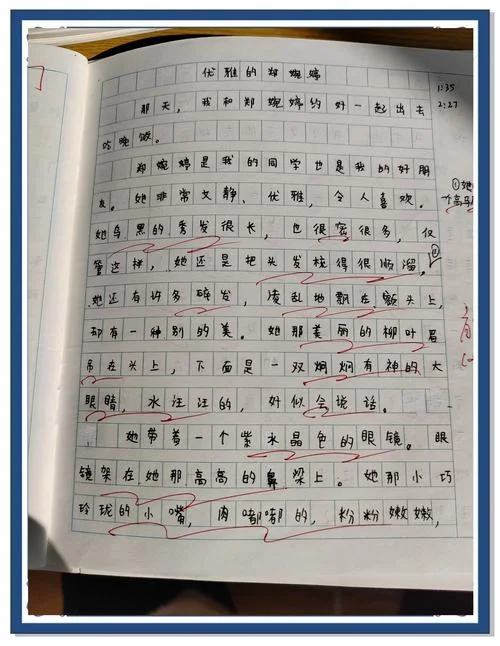 优雅的郑婉婷
1:35
2:27
那天，我和郑婉婷约好一起出去
吃晚饭。
郑婉婷是我的同学也是我的好朋
友。她非常文静、优雅，令人喜欢。
①她
个高
她乌黑的秀发很长，也很密很多，仅
管这样，她还是把头发梳得很顺溜。
她还有许多碎发，凌乱地飘在额头上，
却有一种别的美。她那美丽的柳叶眉
吊在头上，下面是一双炯炯有神的大
眼睛，水汪汪的，好似会说话。
她带着一个紫水晶色的眼镜。眼
镜架在她那高高的鼻梁上。她那小巧
玲珑的小嘴，肉嘟嘟的，粉粉嫩嫩，